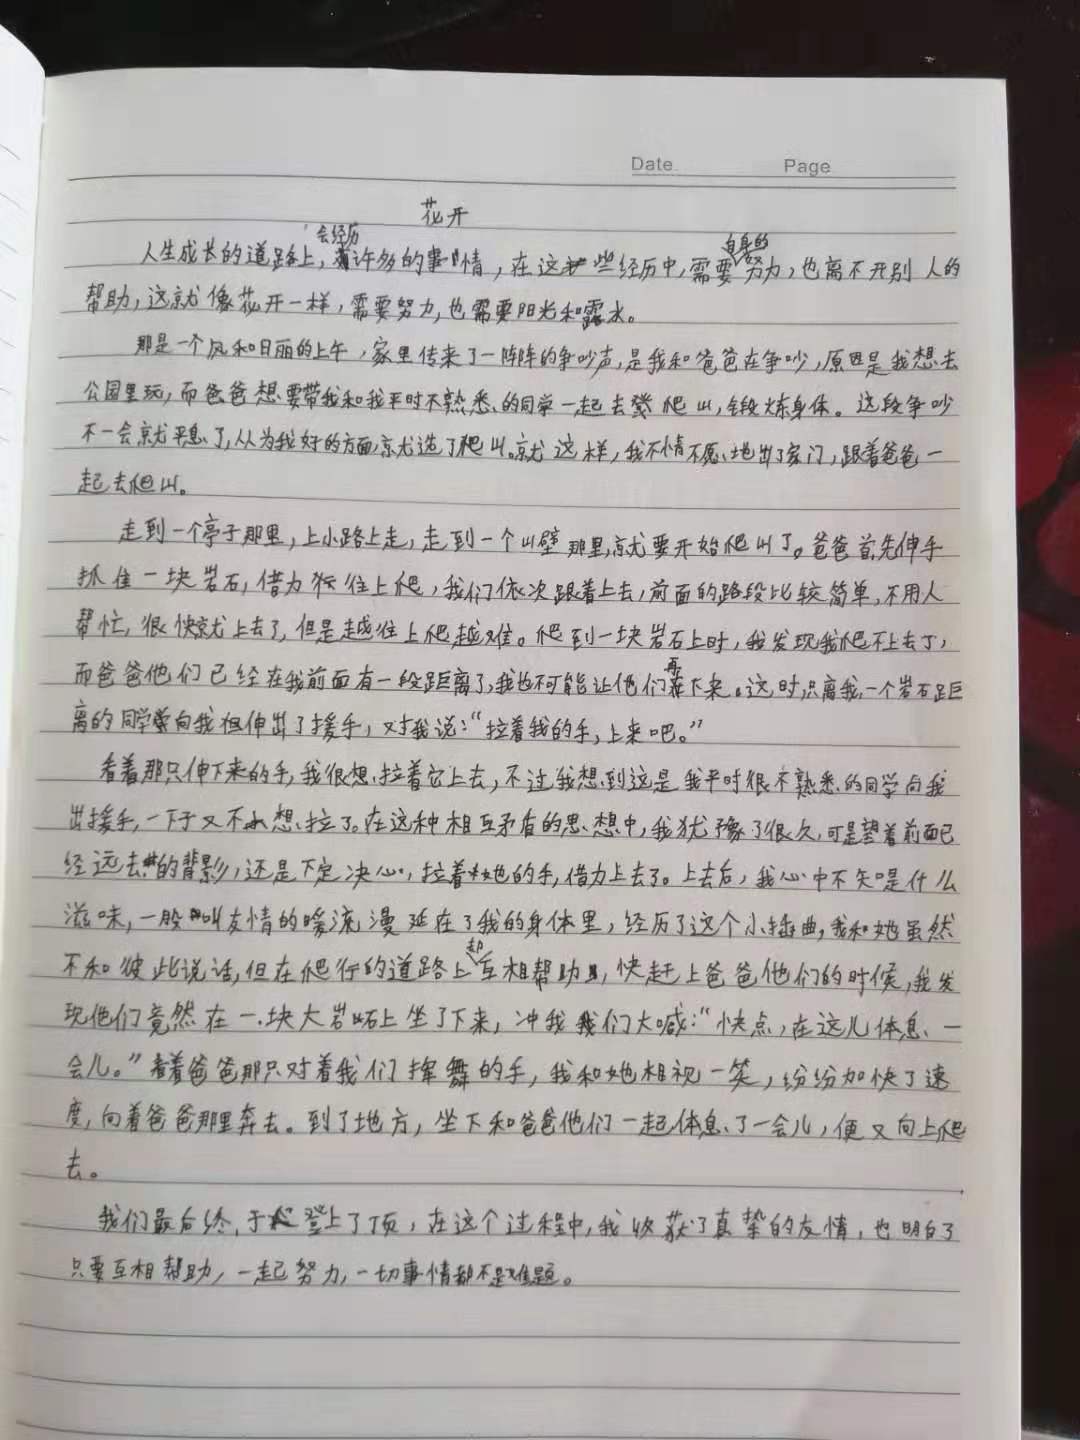 Date. Page
花开
人生成长的道路上，会经历许多的事情，在这些经历中，需要自身的努力，也离不开别人的
帮助，这就像花开一样，需要努力，也需要阳光和露水。
那是一个风和日丽的上午，家里传来了一阵阵的争吵声，是我和爸爸在争吵，原因是我想去
公园里玩，而爸爸想要带我和我平时不熟悉的同学一起去爬山，锻炼身体。这段争吵
不一会就平息了，从为我好的方面就选了爬山。就这样，我不情不愿地出了家门，跟着爸爸一
起去爬山。
走到一个亭子那里，上小路上走，走到一个山壁那里，就要开始爬山了。爸爸首先伸手
抓住一块岩石，借力往上爬，我们依次跟着上去，前面的路段比较简单，不用人
帮忙，很快就上去了，但是越往上爬越难。爬到一块岩石上时，我发现我爬不上去了，
而爸爸他们已经在我前面有一段距离了，我也不可能让他们再下来。这时，只离我一个岩石距
离的同学向我伸出了援手，对我说：“拉着我的手，上来吧。”
看着那只伸下来的手，我很想拉着它上去，不过我想到这是我平时很不熟悉的同学向我
出援手，一下子又不想拉了。在这种相互矛盾的思想中，我犹豫了很久，可是望着前面已
经远去的背影，还是下定决心，拉着她的手，借力上去了。上去后，我心中不知是什么
滋味，一股叫友情的暖流漫延在了我的身体里，经历了这个小插曲，我和她虽然
不和彼此说话，但在爬行的道路上却互相帮助，快赶上爸爸他们的时候，我发
现他们竟然在一块大岩石上坐了下来，冲我们大喊：“快点，在这儿体息一
会儿。”看着爸爸那只对着我们挥舞的手，我和她相视一笑，纷纷加快了速
度，向着爸爸那里奔去。到了地方，坐下和爸爸他们一起体息了一会儿，便又向上爬
去。
我们最后终于登上了顶，在这个过程中，我收获了真挚的友情，也明白了
只要互相帮助，一起努力，一切事情都不是难题。